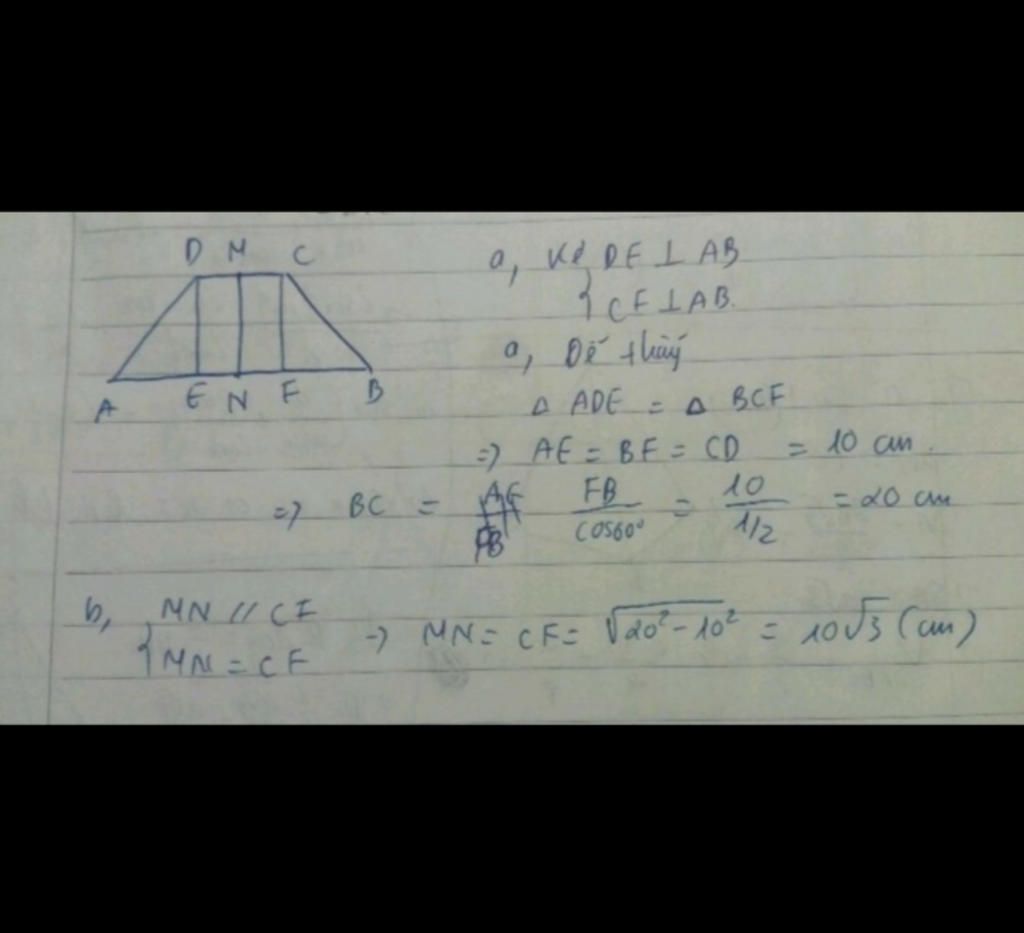 D M C
A E N F B
a, Kẻ { DE ⊥ AB
CF ⊥ AB.
a, Dễ thấy
Δ ADE = Δ BCF
=> AE = BF = CD = 10 cm.
=> BC = FB/cos60° = 10/1/2 = 20 cm
b, { MN // CF
MN = CF
-> MN = CF = √20² - 10² = 10√3 (cm)